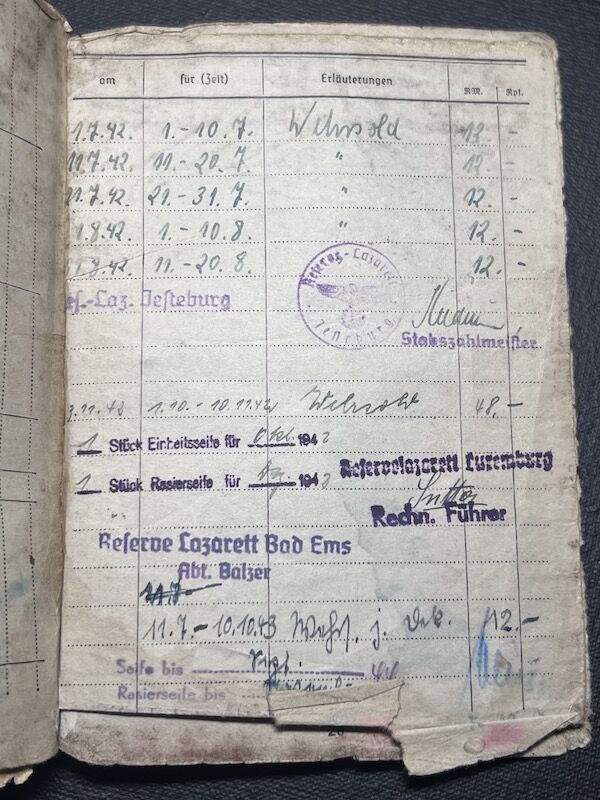 am für (Zeit) Erläuterungen RM. Rpf.
1.7.42. 1.-10.7. Wehrsold 12 -
11.7.42. 11.-20.7. " 12 -
21.7.42. 21.-31.7. " 12. -
1.8.42. 1.-10.8 " 12. -
11.8.42. 11.-20.8. " 12. -
Reserve-Lazarett
Jesteburg
es.-Laz. Jesteburg
Stabszahlmeister
.11.42 1.10.-10.11.42 Wehrsold 48,-
1 Stück Einheitsseife für Okt. 1942
1 Stück Rasierseife für 194
Reservelazarett Luxemburg
Rechn. Führer
Reserve Lazarett Bad Ems
Abt. Balzer
11.7.-10.10.43 Wehrs. j. Dek. 12 -
Seife bis 44
Rasierseife bis